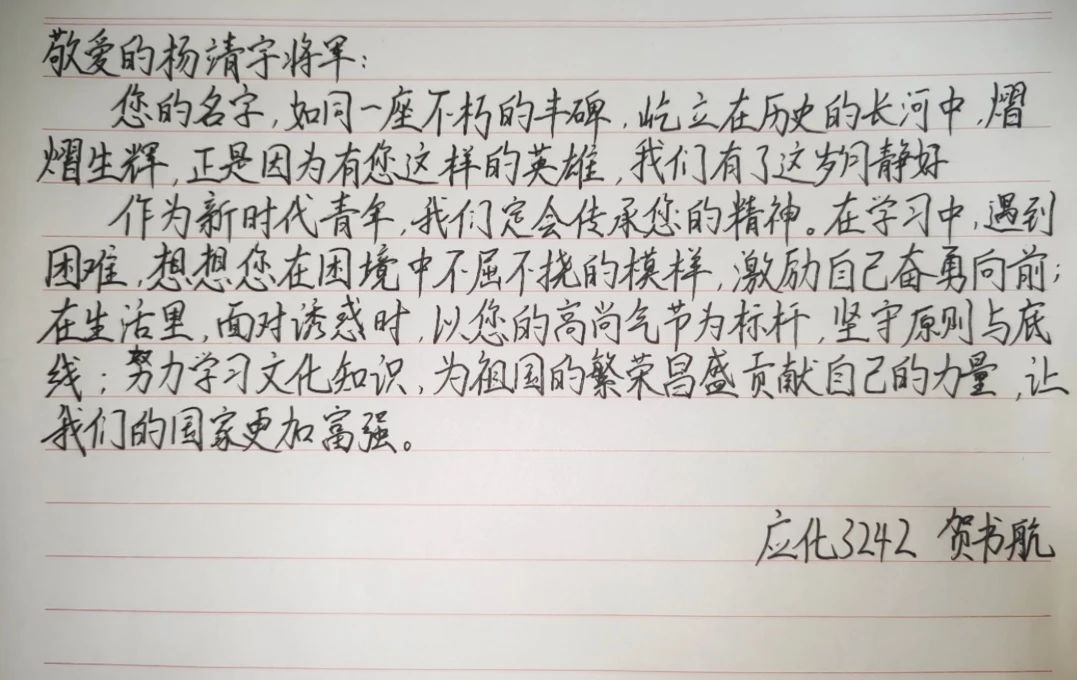 敬爱的杨靖宇将军：
您的名字，如同一座不朽的丰碑，屹立在历史的长河中，熠
熠生辉，正是因为有您这样的英雄，我们有了这岁月静好
作为新时代青年，我们定会传承您的精神。在学习中，遇到
困难，想想您在困境中不屈不挠的模样，激励自己奋勇向前；
在生活里，面对诱惑时，以您的高尚气节为标杆，坚守原则与底
线；努力学习文化知识，为祖国的繁荣昌盛贡献自己的力量，让
我们的国家更加富强。
应化3242 贺书航